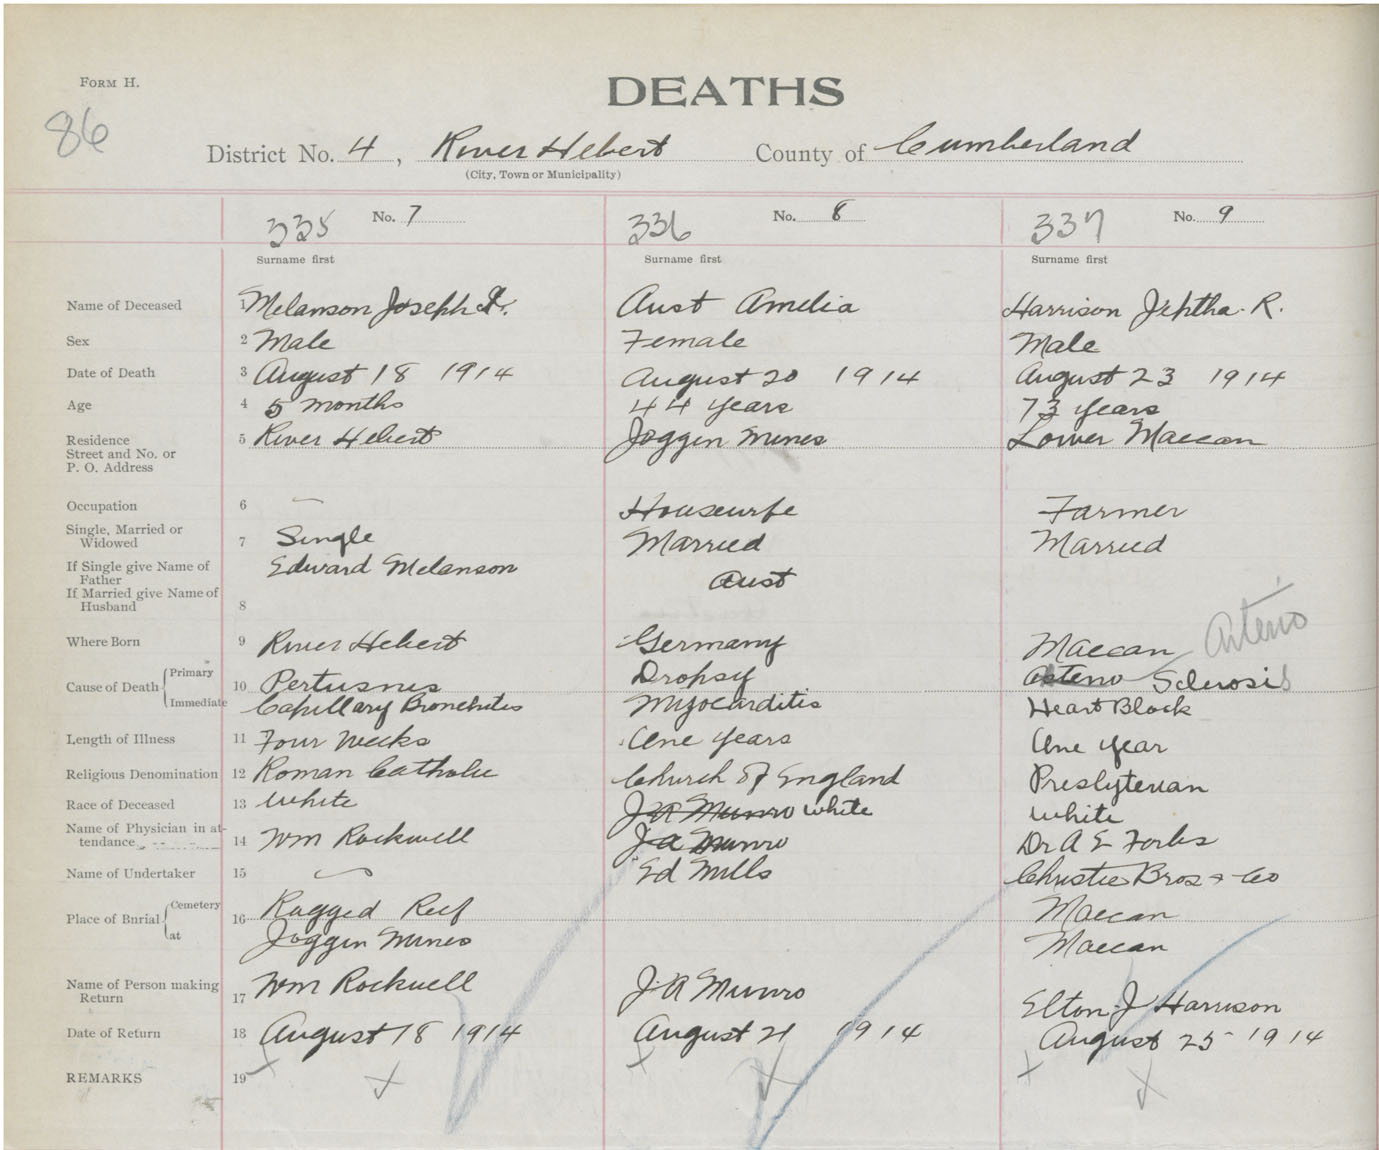 FORM H.
DEATHS
86
District No. 4, River Hebert County of Cumberland
(City, Town or Municipality)
335 No. 7 336 No. 8 337 No. 9
Surname first Surname first Surname first
Name of Deceased 1 Melanson Joseph Aust Amelia Harrison Jeptha. R.
Sex 2 Male Female Male
Date of Death 3 August 18 1914 August 20 1914 August 23 1914
Age 4 5 months 44 years 73 years
Residence 5 River Hebert Joggin Mines Lower Maccan
Street and No. or
P. O. Address
Occupation 6 Housewife Farmer
Single, Married or
Widowed 7 Single Married Married
If Single give Name of
Father Edward Melanson Aust
If Married give Name of
Husband 8
Where Born 9 River Hebert Germany Maccan Arterio
Cause of Death Primary 10 Pertusnus Dropsy Arterio Sclerosis
Immediate Capillary Bronchites Myocarditis Heart Block
Length of Illness 11 Four Weeks One years One year
Religious Denomination 12 Roman Catholic Church of England Presbyterian
Race of Deceased 13 White J A Munro White White
Name of Physician in at-
tendance 14 Wm Rockwell J A Munro Dr A E Forbs
Name of Undertaker 15 Ed Mills Christie Bros + Co
Place of Burial Cemetery 16 Ragged Reef Maccan
at Joggin Mines Maccan
Name of Person making
Return 17 Wm Rockwell J. A Munro Elton J Harrison
Date of Return 18 August 18 1914 August 21 1914 August 25 1914
REMARKS 19